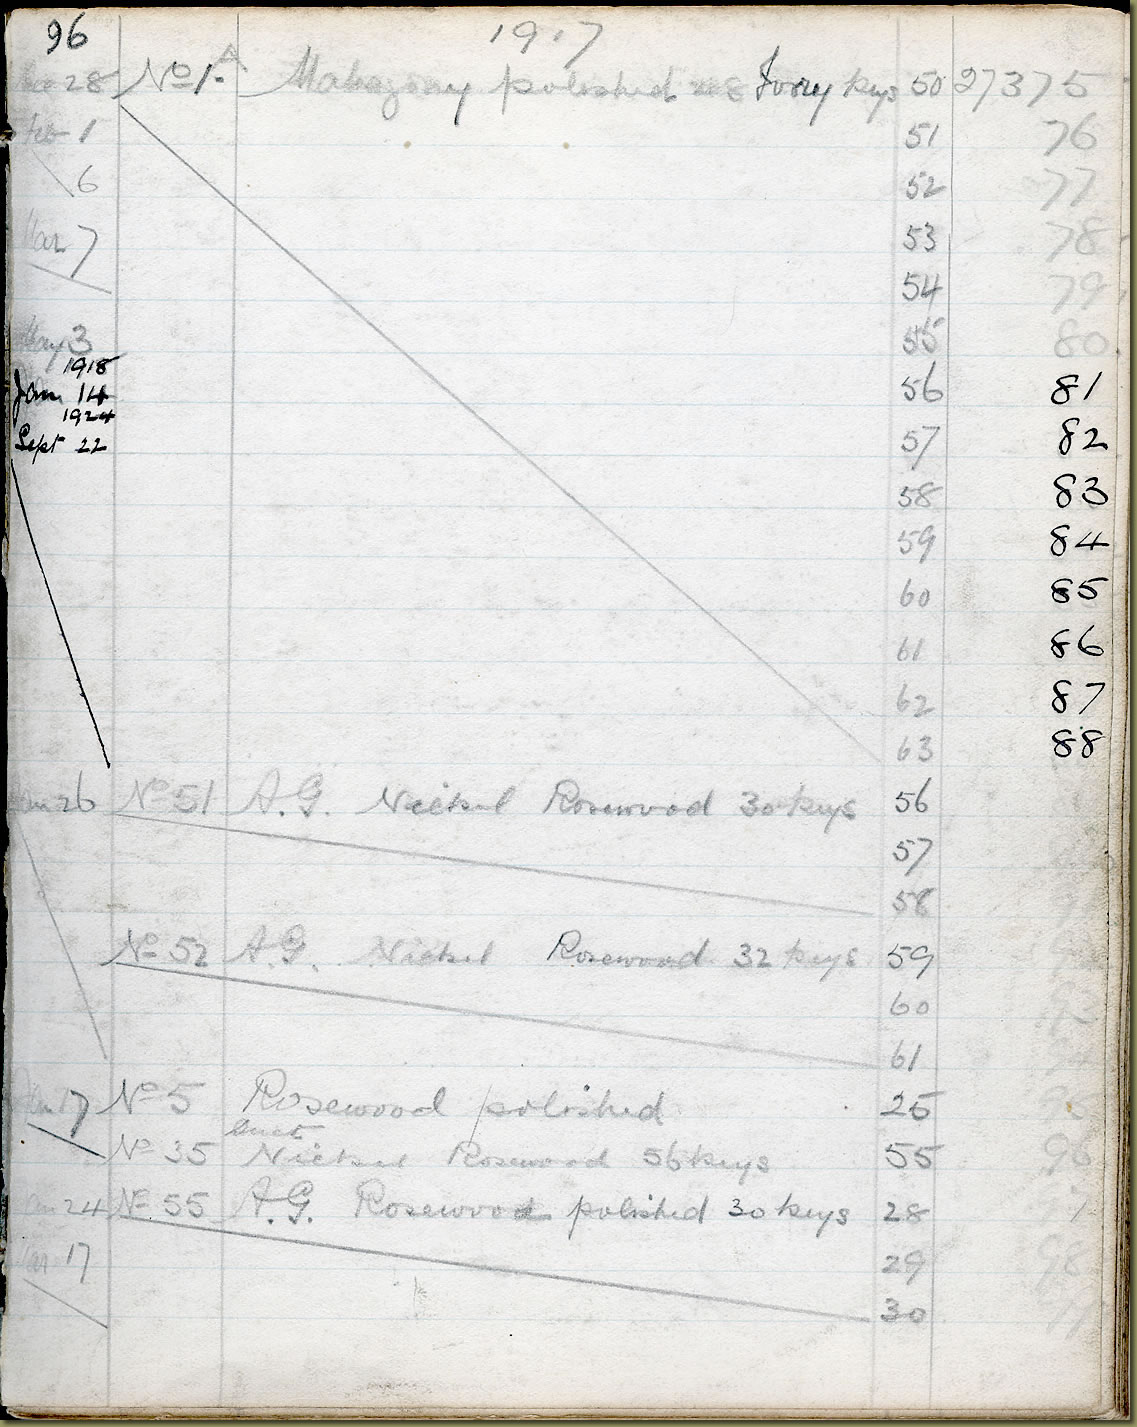 96 1917
28 No 1 A Mahogany polished Ivory Keys 50 27375
Feb 1 51 76
6 52 77
Mar 7 53 78
54 79
May 3 55 80
1918
Jan 14 56 81
1924
Sept 22 57 82
58 83
59 84
60 85
61 86
62 87
63 88
26 No 51 A.G. Nickel Rosewood 30 keys 56
57
58
No 52 A.G. Nickel Rosewood 32 keys 59
60
61
Jan 17 No 5 Rosewood polished 25
Duet
No 35 Nickel Rosewood 56 keys 55 96
Jan 24 No 55 A.G. Rosewood polished 30 keys 28
Mar 17 29 98
30